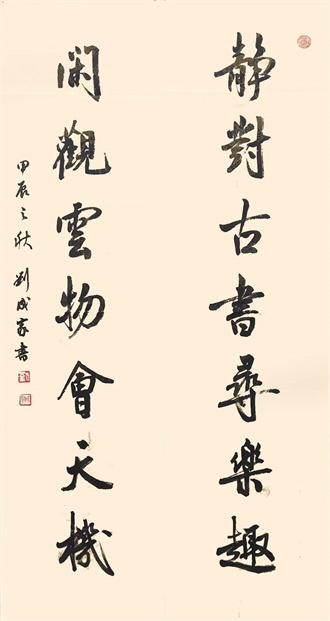 靜對古書尋樂趣
閑觀雲物會天機
甲辰之秋 劉成家書